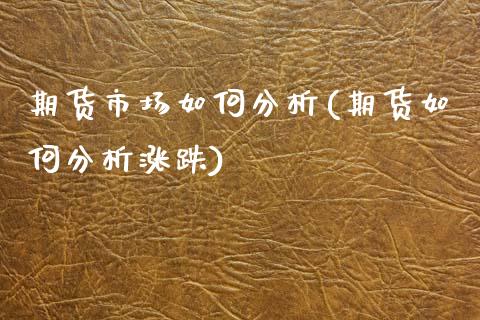 期货市场如何分析(期货如
何分析涨跌)